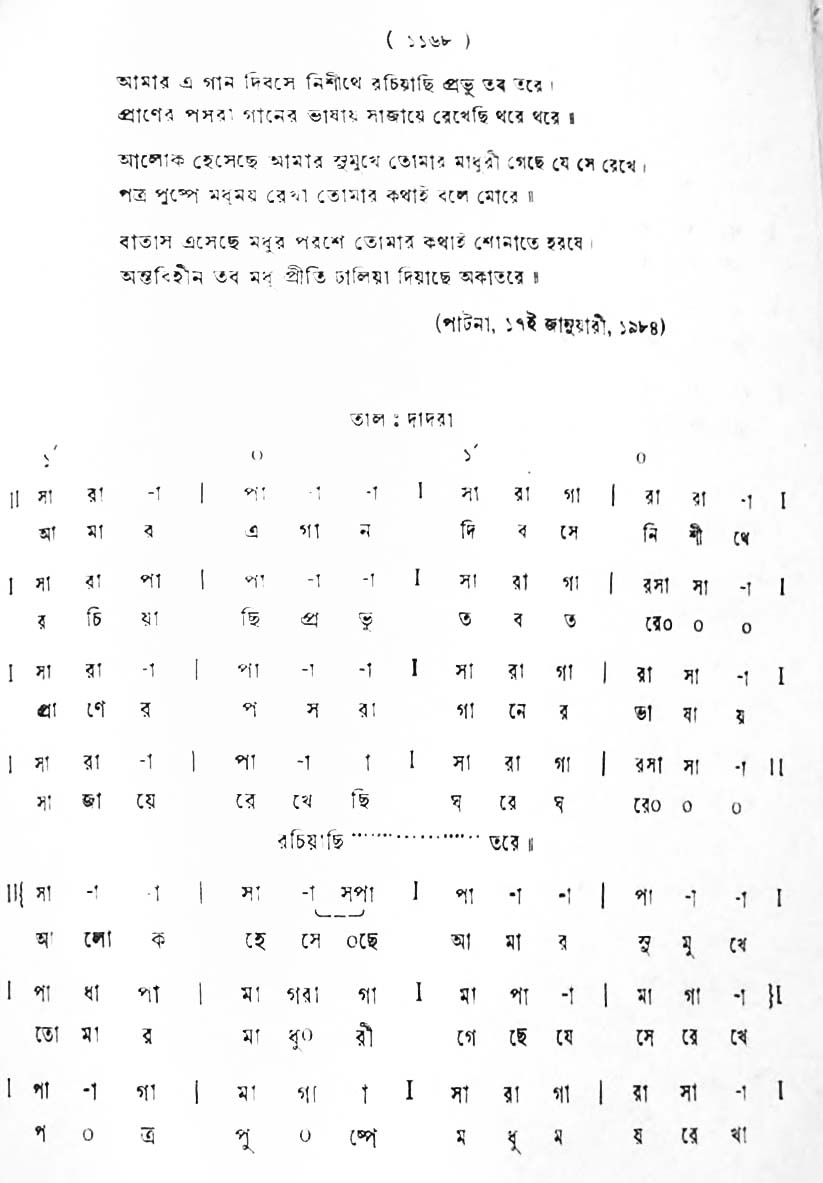 ( ১১৬৮ )
আমার এ গান দিবসে নিশীথে রচিয়াছি প্রভু তব তরে।
প্রাণের পসরা গানের ভাষায় সাজায়ে রেখেছি থরে থরে॥
আলোক হেসেছে আমার সুমুখে তোমার মাধুরী গেছে যে সে রেখে।
পত্র পুষ্পে মধুময় রেখা তোমার কথাই বলে মোরে॥
বাতাস এসেছে মধুর পরশে তোমার কথাই শোনাতে হরষে।
অন্তবিহীন তব মধু প্রীতি ঢালিয়া দিয়াছে অকাতরে॥
(পাটনা, ১৭ই জানুয়ারী, ১৯৮৪)
তাল : দাদরা
১´ ০ ১´ ০
|| সা রা -া | পা -া -া I সা রা গা | রা রা -া I
আ মা র এ গা ন দি ব সে নি শী থে
I সা রা পা | পা -া -া I সা রা গা | রসা সা -া I
র চি য়া ছি প্র ভু ত ব ত রে০ ০ ০
I সা রা -া | পা -া -া I সা রা গা | রা সা -া I
প্রা ণে র প স রা গা নে র ভা ষা য়
| সা রা -া | পা -া া I সা রা গা | রসা সা -া II
সা জা য়ে রে খে ছি থ রে থ রে০ ০ ০
রচিয়াছি ·················· তরে॥
II{ সা -া -া | সা -া সপা I পা -া -া | পা -া -া I
আ লো ক হে সে ০ছে আ মা র সু মু খে
I পা ধা পা | মা গরা গা I মা পা -া | মা গা -া }I
তো মা র মা ধু০ রী গে ছে যে সে রে খে
I পা -া গা | মা গা া I সা রা গা | রা সা -া I
প ০ ত্র পু ০ ষ্পে ম ধু ম য় রে খা